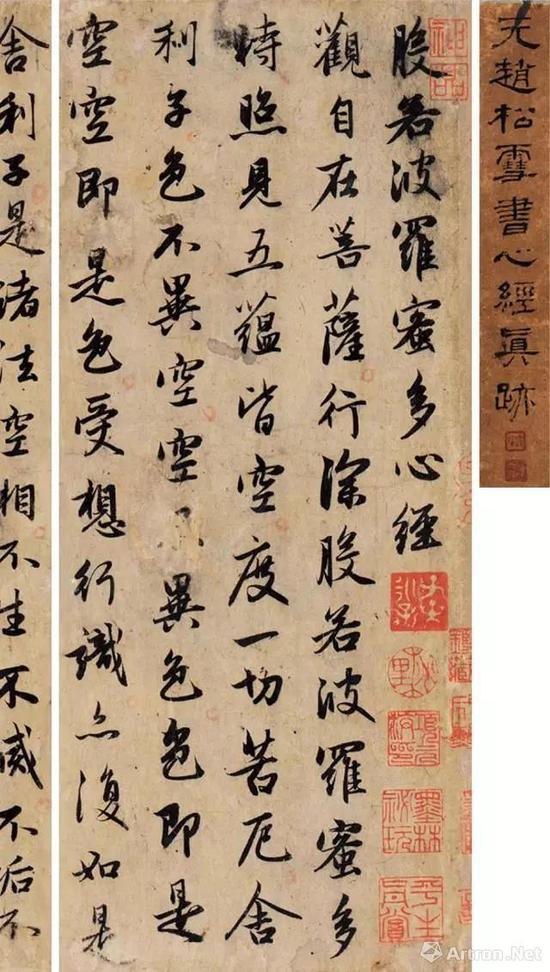 元趙松雪書心經眞跡
般若波羅蜜多心經
觀自在菩薩行深般若波羅蜜多
時照見五蘊皆空度一切苦厄舍
利子色不異空空不異色色即是
空空即是色受想行識亦復如是
舍利子是諸法空相不生不滅不垢不
神品
墨林祕玩
平生真賞
Artron.Net